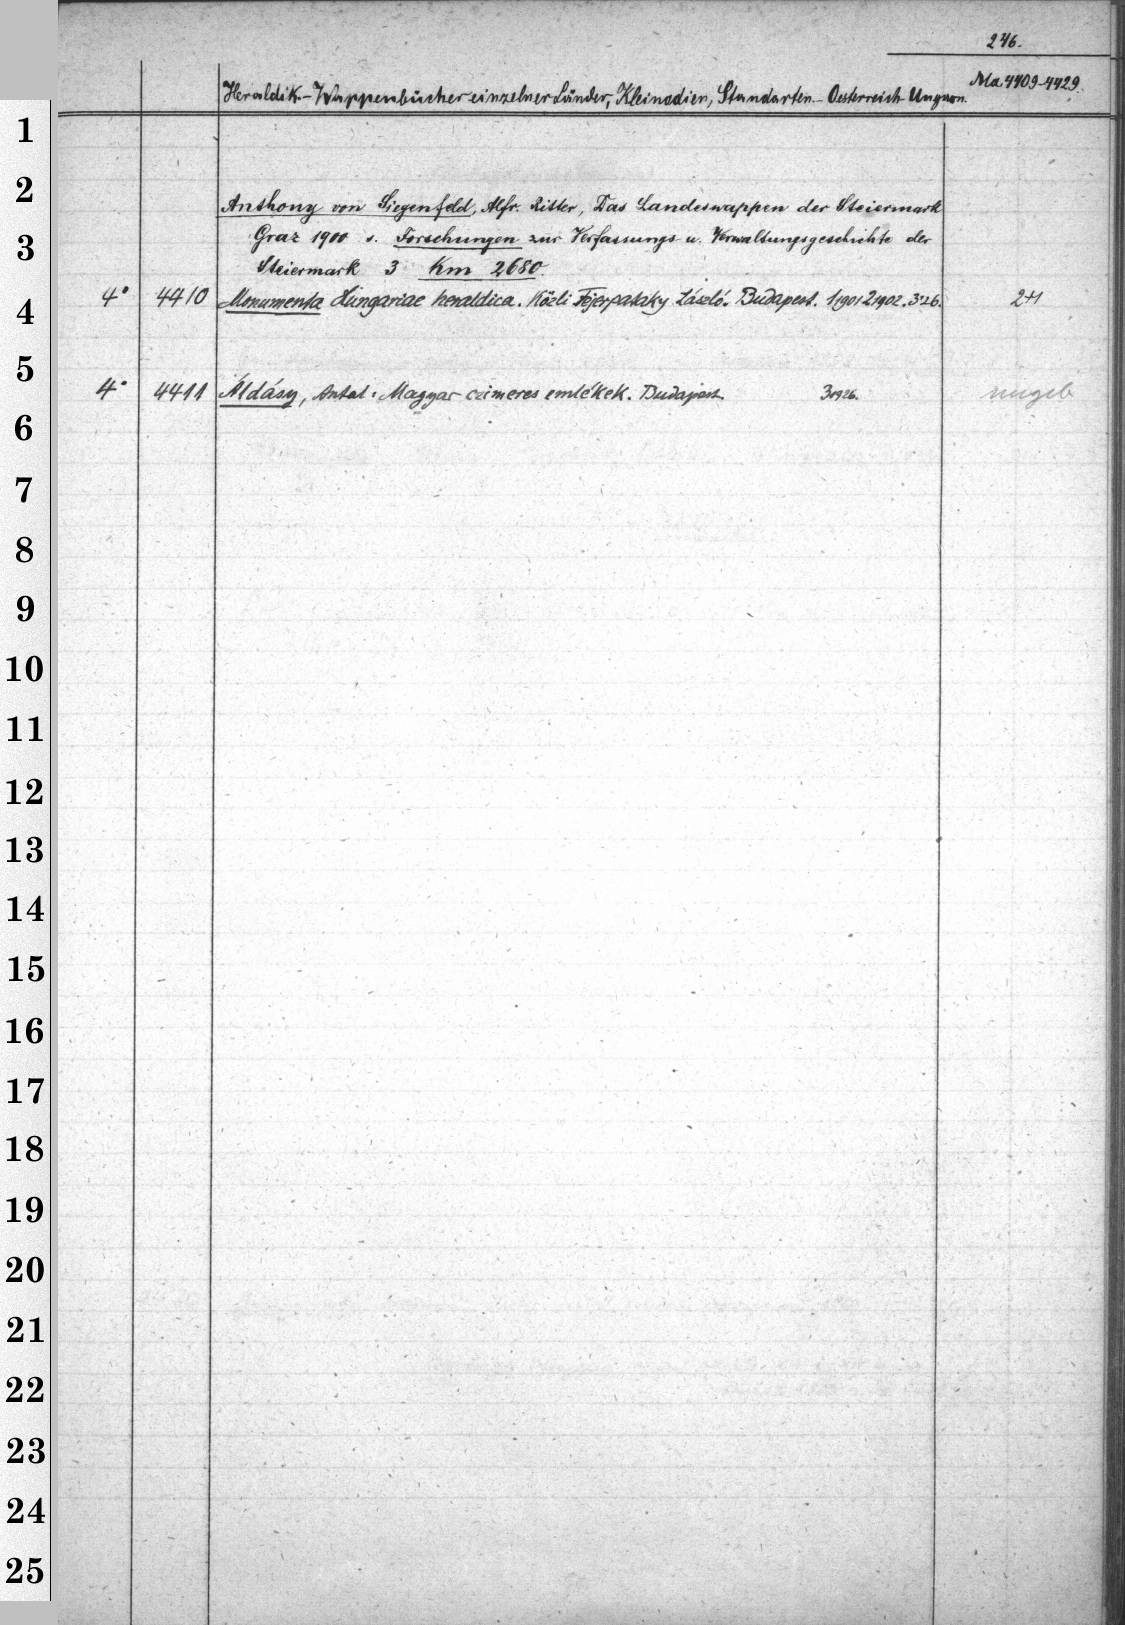 246.
Ma 4409-4429.
Heraldik.- Wappenbücher einzelner Länder, Kleinodien, Standarten.- Oesterreich-Ungarn.
1
2
Anthony von Siegenfeld, Alfr. Ritter, Das Landeswappen der Steiermark
3
Graz 1900 s. Forschungen zur Verfassungs- u. Verwaltungsgeschichte der
Steiermark 3 Km 2680.
4
4° 4410 Monumenta Hungariae heraldica. Közli Fejérpataky László. Budapest. 1,1901 2,1902. 3:26. 2+1
5
4° 4411 Áldásy, Antal: Magyar czimeres emlékek. Budapest. 3,1926. ungeb
6
7
8
9
10
11
12
13
14
15
16
17
18
19
20
21
22
23
24
25